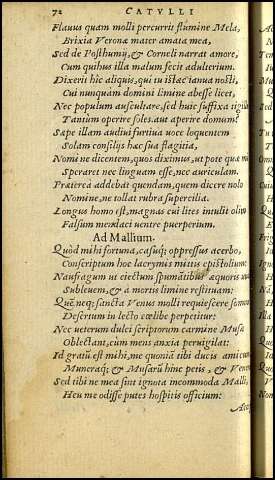 72 CATVLLI
Flauus quam molli percurrit flumine Mela,
Brixia Verona mater amata mea,
Sed de Posthumij, & Corneli narrat amore,
Cum quibus illa malum fecit adulterium.
Dixerit hic aliquis, qui tu istæc ianua nosti,
Cui nunquam domini limine abesse licet,
Nec populum auscultare, sed huic suffixa tigillo
Tantum operire soles, aut aperire domum?
Sæpe illam audiui furtiua uoce loquentem
Solam consilijs hæc sua flagitia,
Nomine dicentem, quos diximus, ut pote quæ mi
Speraret nec linguam esse, nec auriculam.
Præterea addebat quendam, quem dicere nolo
Nomine, ne tollat rubra supercilia.
Longus homo est, magnas cui lites intulit olim
Falsum mendaci uentre puerperium.
Ad Mallium.
Quòd mihi fortuna, casuq; oppressus acerbo,
Conscriptum hoc lacrymis mittis epistolium:
Naufragum ut eiectum spumātibus æquoris
Subleuem, & à mortis limine restituam:
Quē neq; sancta Venus molli requiescere somno
Desertum in lecto cælibe perpetitur:
Nec ueterum dulci scriptorum carmine Musæ
Oblectant, cùm mens anxia peruigilat:
Id gratū est mihi, me quoniā tibi ducis amicum
Muneraq; & Musarū hinc petis, & Ven
Sed tibi ne mea sint ignota incommoda Malli,
Heu me odisse putes hospitis officium: